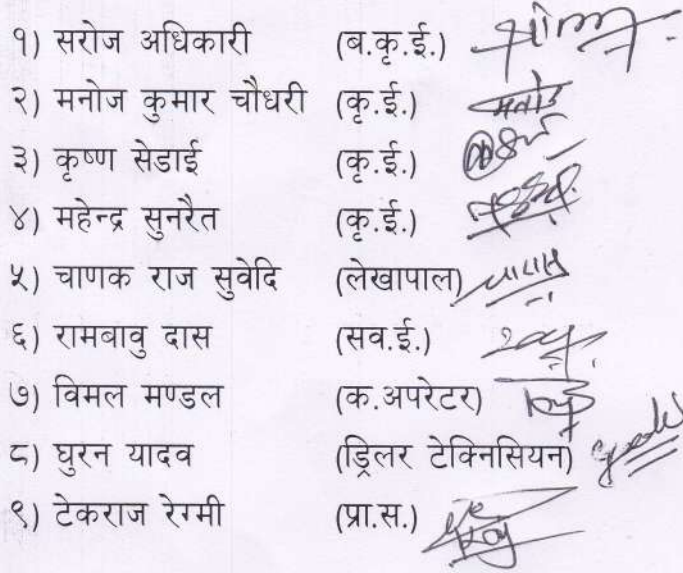 १) सरोज अधिकारी (ब.कृ.ई.)
२) मनोज कुमार चौधरी (कृ.ई.) मनोज
३) कृष्ण सेडाई (कृ.ई.)
४) महेन्द्र सुनरैत (कृ.ई.)
५) चाणक राज सुवेदि (लेखापाल)
६) रामबावु दास (सव.ई.)
७) विमल मण्डल (क.अपरेटर)
८) घुरन यादव (ड्रिलर टेक्निसियन)
९) टेकराज रेग्मी (प्रा.स.)